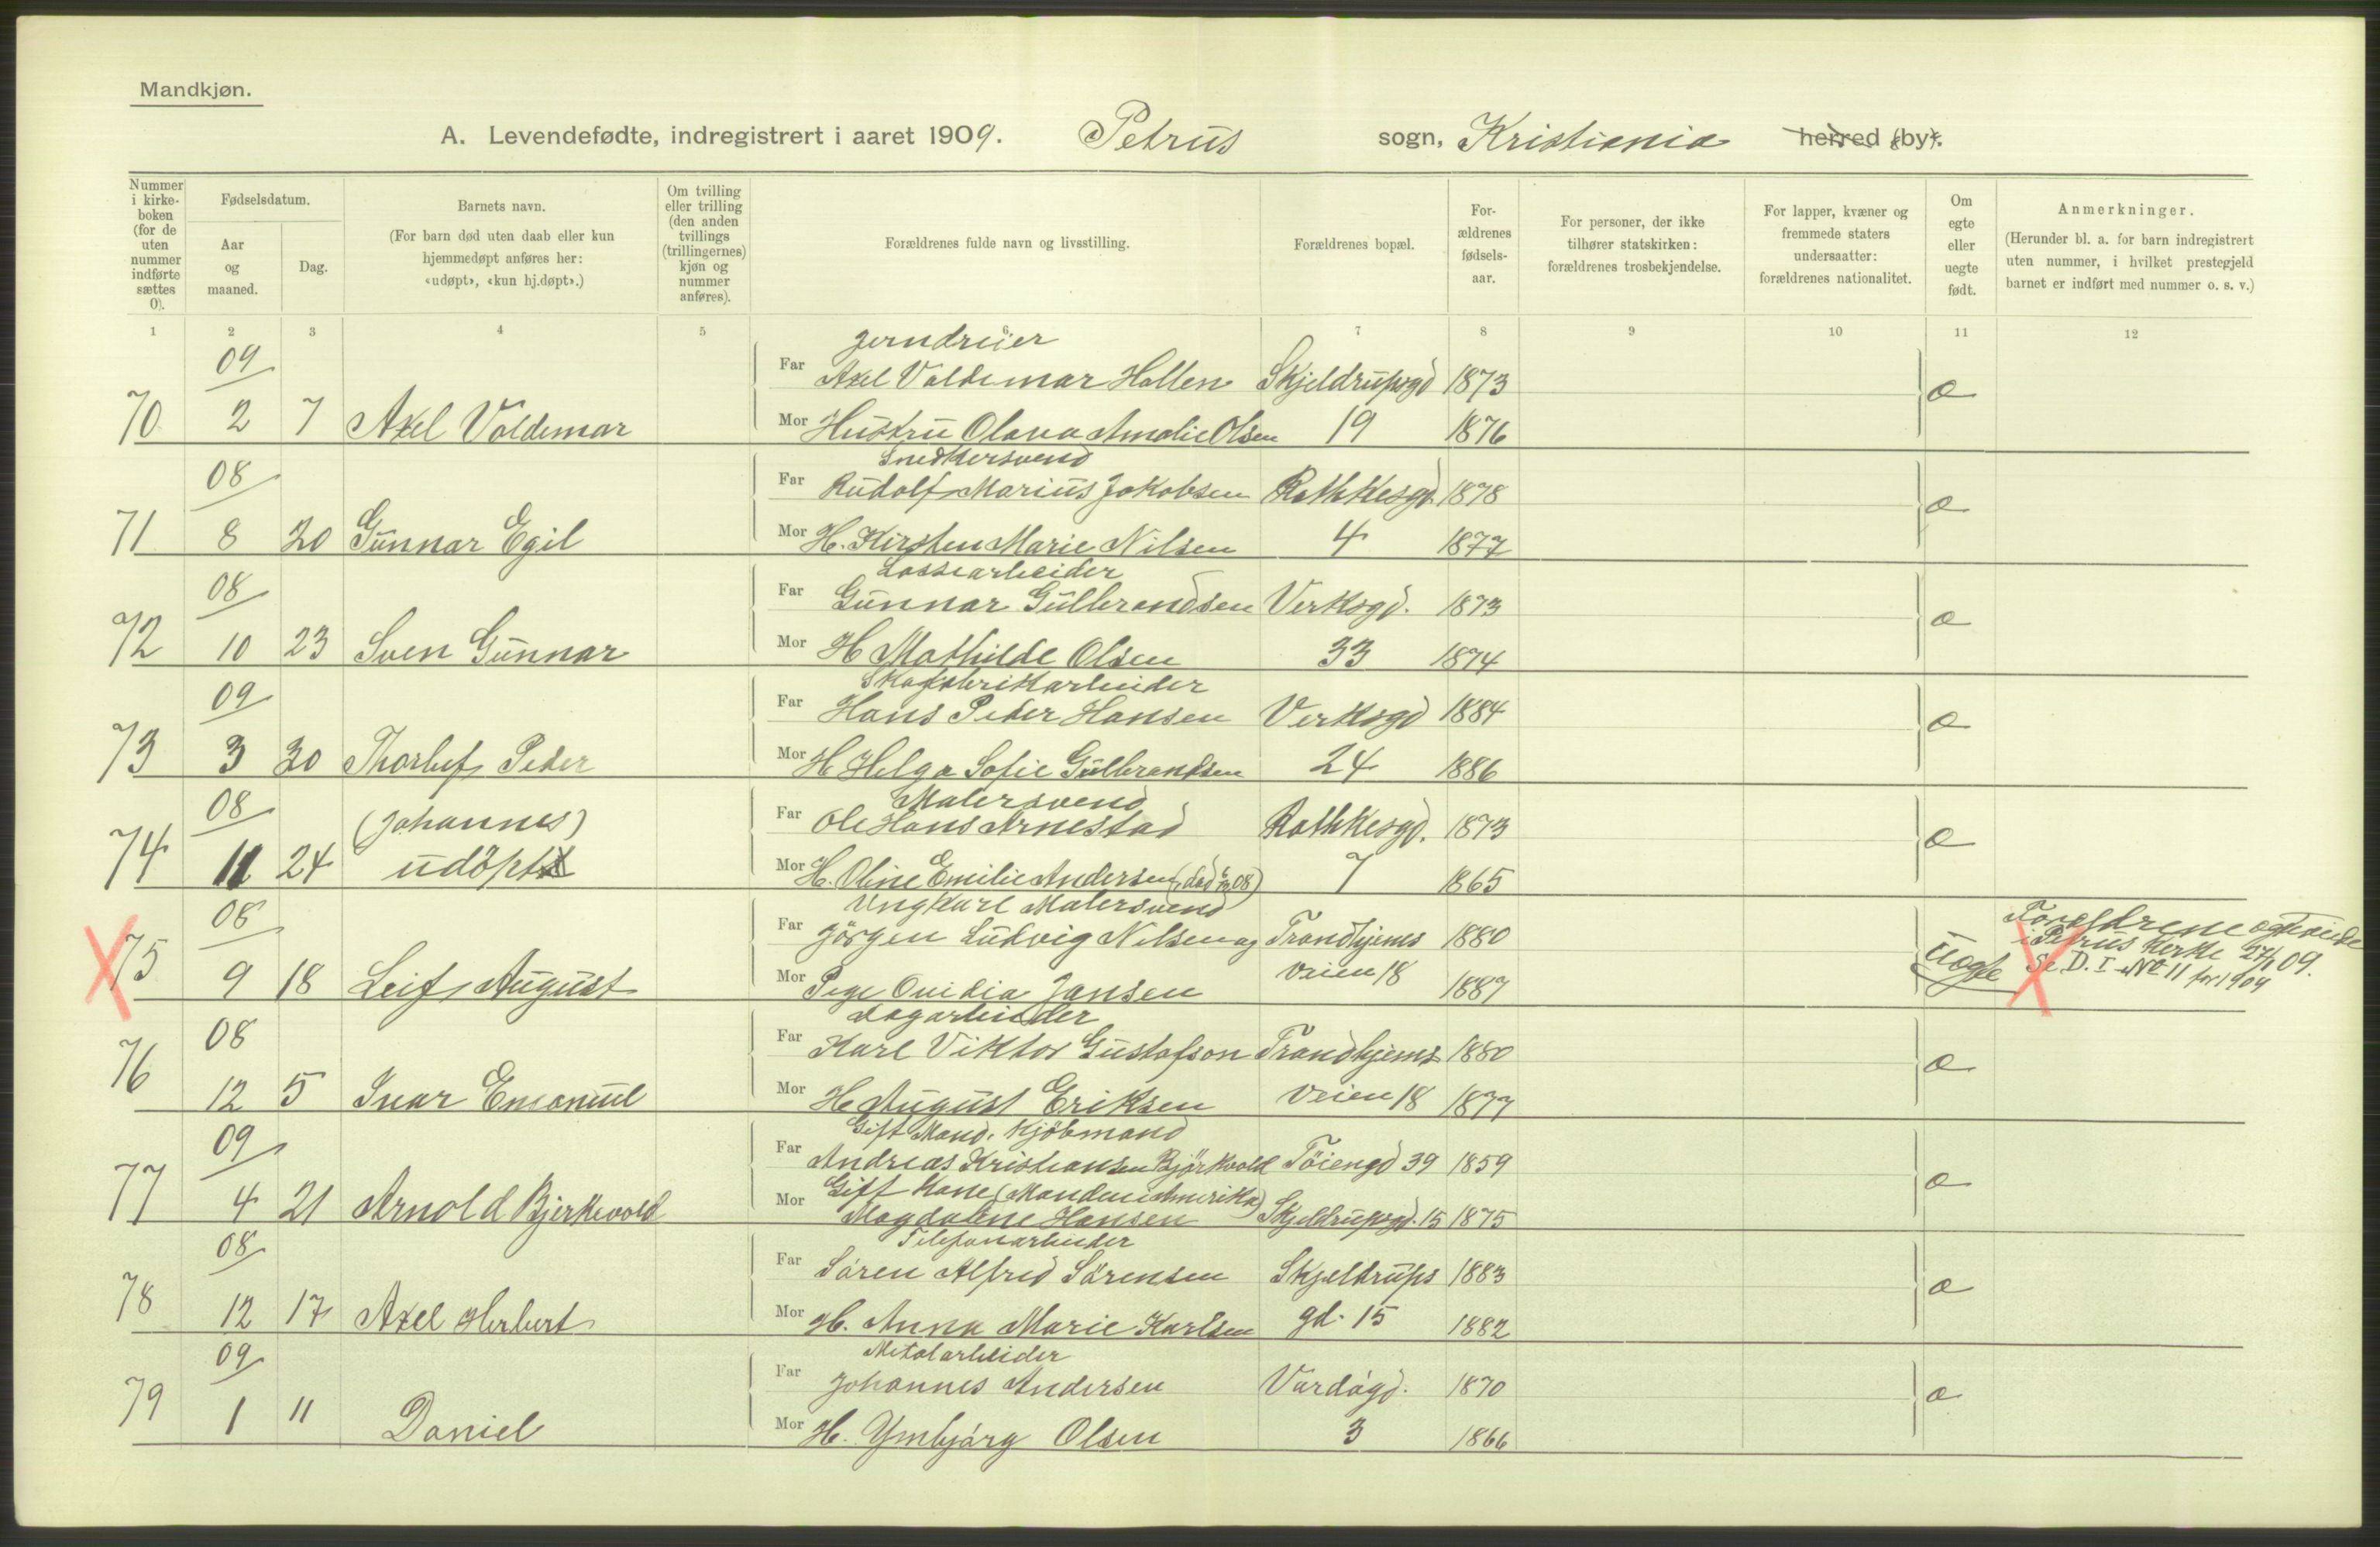 Mandkjøn.
A. Levendefødte, indregistrert i aaret 1909. Petrus sogn, Kristiania herred (by).
Nummer i kirke-boken (for de uten nummer indførte sættes 0).
Fødselsdatum.
Aar og maaned.
Dag.
Barnets navn.
(For barn død uten daab eller kun hjemmedøpt anføres her: «udøpt», «kun hj.døpt».)
Om tvilling eller trilling (den anden tvillings (trillingernes) kjøn og nummer anføres).
Forældrenes fulde navn og livsstilling.
Forældrenes bopæl.
For-ældrenes fødsels-aar.
For personer, der ikke tilhører statskirken: forældrenes trosbekjendelse.
For lapper, kvæner og fremmede staters undersaatter: forældrenes nationalitet.
Om egte eller uegte født.
Anmerkninger.
(Herunder bl. a. for barn indregistrert uten nummer, i hvilket prestegjeld barnet er indført med nummer o. s. v.)
1 2 3 4 5 6. 7 8 9 10 11 12
09 Jerndreier
Far Axel Valdemar Hollen Skjeldrupsgd 1873
70 2 7 Axel Valdemar Mor Hustru Olava Amalie Olsen 19 1876 æ
08 Snedkersvend
Far Rudolf Marius Jakobsen Rathkesgd. 1878
71 8 20 Gunnar Egil Mor H. Kirsten Marie Nilsen 4 1877 æ
08 Lossearbeider
Far Gunnar Gulbrandsen Verksgd. 1873
72 10 23 Sven Gunnar Mor H Mathilde Olsen 33 1874 æ
09 Skofabrikarbeider
Far Hans Peder Hansen Verksgd 1884
73 3 20 Thorleif Peder Mor H Helga Sofie Gulbrandsen 24 1886 æ
08 (Johannes) Malersvend
Far Ole Hans Arnestad Rathkesgd. 1873
74 11 24 udöpt Mor H. Oline Emilie Andersen (død 08) 7 1865 æ
08 Ungkarl Malersvend
Far Jörgen Ludvig Nilsen og Trondhjems 1880
75 9 18 Leif August Mor Pige Ovidia Jansen veien 18 1887 Uægte
Forældrene egteviede
i Petrus Kerke 27/1 09.
Se D. I No 11 for 1909
08 Dagarbeider
Far Karl Viktor Gustafson Trondhjems 1880
76 12 5 Ivar Emanuel Mor H August Eriksen veien 18 1877 æ
09 Gift Mand. Kjöbmand
Far Andreas Kristiansen Björkvold Töiengd 39 1859
Gift Kone (Manden i Amerika)
77 4 21 Arnold Bjerkevold Mor Magdalene Hansen Skjeldrupsgd. 15 1875 æ
08 Telefonarbeider
Far Sören Alfred Sörensen Skjeldrups 1883
78 12 17 Axel Herbert Mor H. Anna Marie Karlsen gd. 15 1882 æ
09 Metalarbeider
Far Johannes Andersen Vardögd. 1870
79 1 11 Daniel Mor H. Ymbjörg Olsen 3 1866 æ